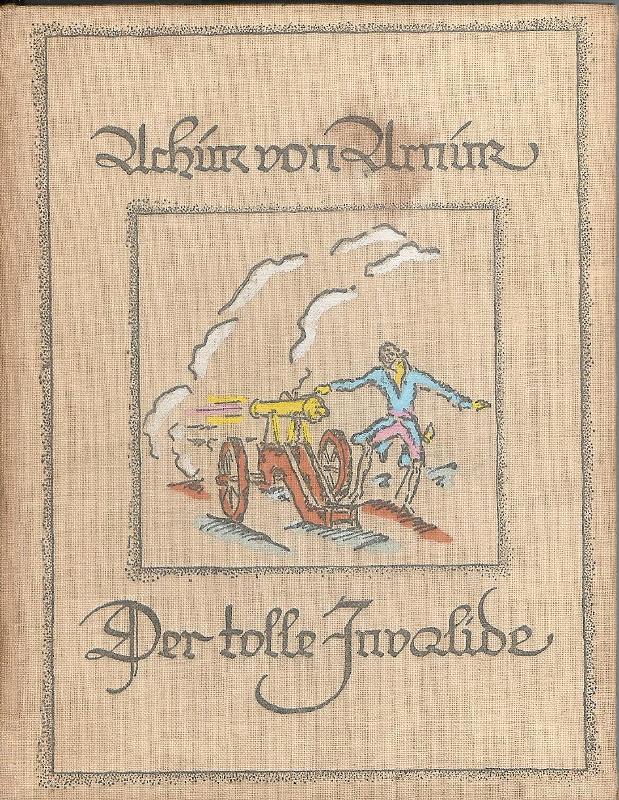 Achim von Arnim
Der tolle Invalide